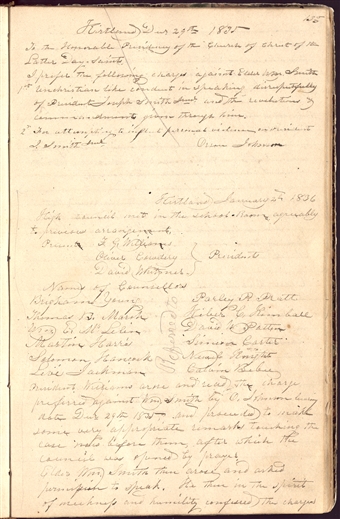 Kirtland Dec 29th 1835
To the Honorable Presidency of the Church of Christ of the
Latter Day Saints,
I prefer the following charges against Elder Wm Smith
1st Unchristian like conduct in speaking disrespectfully
of President Joseph Smith Junr and the revelations &
commandments given through him.
2d For attempting to inflict personal violence on President
J. Smith Junr
Orson Johnson
Kirtland January 2d 1836
High council met in the School Room agreeably
to previous arrangement,
Present F. G. Williams
Oliver Cowdery
David Whitmer
Presidents
Names of Councillors
Brigham Young
Parley P. Pratt
Thomas B. Marsh
Heber C. Kimball
Wm E. McLelin
David W. Patten
Martin Harris
Simeon Carter
Solomon Hancock
Newel Knight
Levi Jackman
Calvin
President Williams arose and read the charge
preferred against Wm Smith by O. Johnson
date Dec 29th 1835 and proceeded to make
some very appropriate remarks touching the
case before them, after which the
council was opened by prayer
Elder Wm Smith then arose and asked
permission to speak. He then in the spirit
of meekness and humility confessed the charges